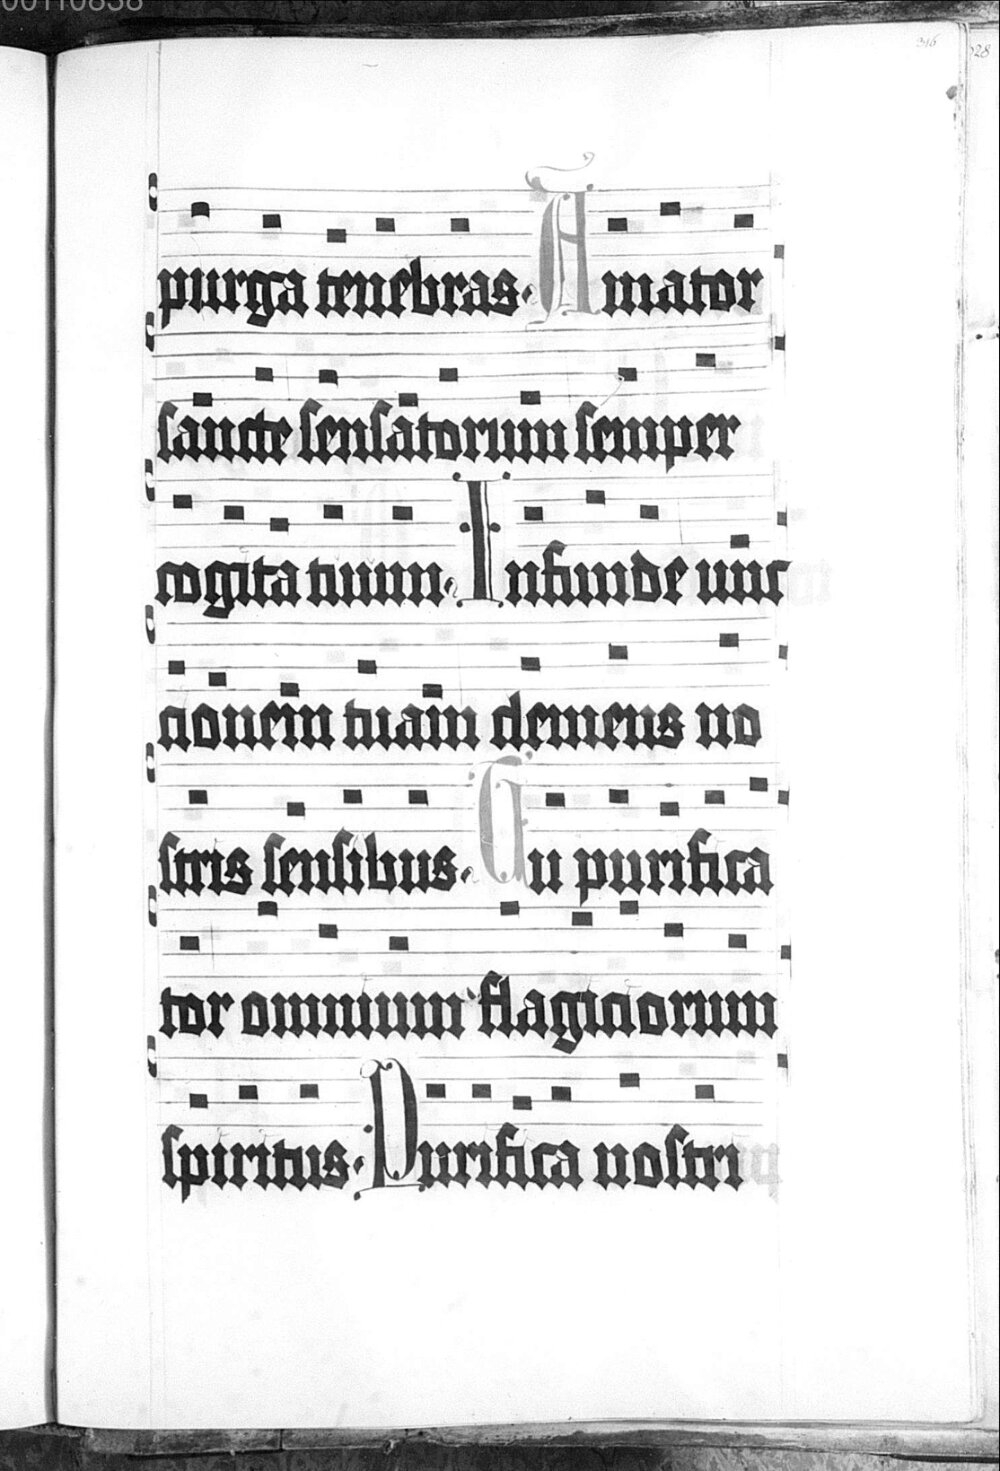 00110838
316
328
purga tenebras. Amator
sancte sensatorum semper
cogitatuum. Infunde unc
cionem tuam clemens no
stris sensibus. Tu purifica
tor omnium flagiciorum
spiritus. Purifica nostri